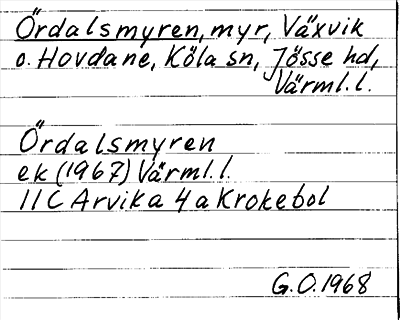 Ördalsmyren, myr, Växvik
o. Hovdane, Köla sn, Jösse hd,
Värml. l.
Ördalsmyren
ek (1967) Värml. l.
11 C Arvika 4 a Krokebol
G.O. 1968